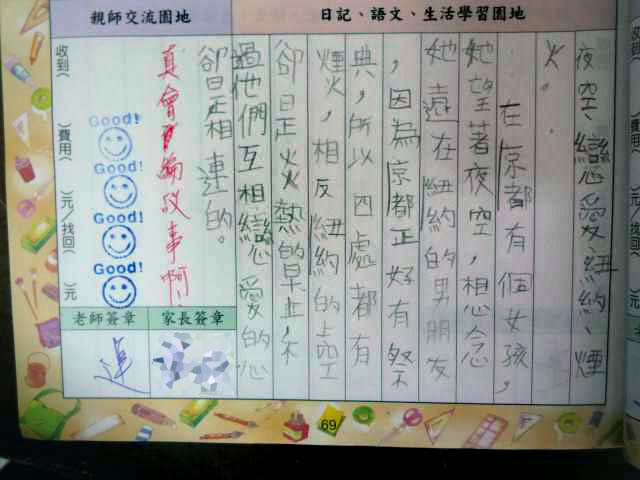 日記、語文、生活學習園地
夜空、戀愛、紐約、煙
火。
在京都有個女孩，
她望著夜空，想念
她遠在紐約的男朋友
，因為京都正好有祭
典，所以四處都有
煙火，相反紐約的高空
卻是火熱的早上，不
過他們互相戀愛的心
卻是相連的。
親師交流園地
真會編故事啊!
Good!
Good!
Good!
Good!
收到( )費用( )元/找回( )元
家長簽章
老師簽章
69